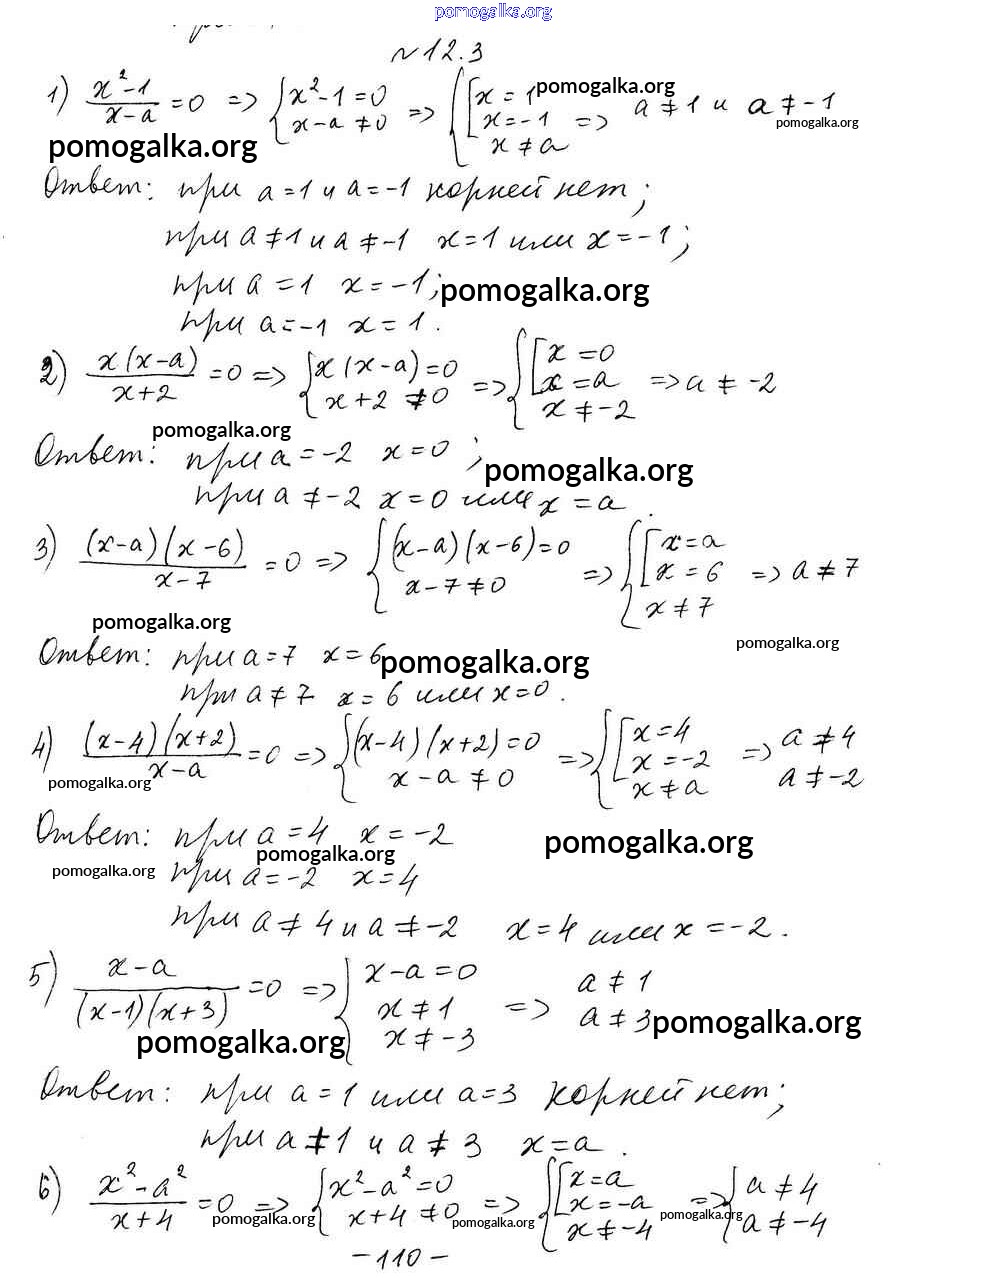 pomogalka.org
№12.3
1) (x²-1)/(x-a) =0 => {x²-1=0; x-a≠0 => {[x=1; x=-1; x≠a => a≠1 и a≠-1
pomogalka.org
pomogalka.org
pomogalka.org
Ответ: при a=1 и a=-1 корней нет;
при a≠1 и a≠-1 x=1 или x=-1;
при a=1 x=-1;
pomogalka.org
при a=-1 x=1.
2) x(x-a)/(x+2) =0 => {x(x-a)=0; x+2≠0 => {[x=0; x=a; x≠-2 => a≠-2
pomogalka.org
Ответ: при a=-2 x=0;
pomogalka.org
при a≠-2 x=0 или x=a.
3) (x-a)(x-6)/(x-7) =0 => {(x-a)(x-6)=0; x-7≠0 => {[x=a; x=6; x≠7 => a≠7
pomogalka.org
pomogalka.org
Ответ: при a=7 x=6
pomogalka.org
при a≠7 x=6 или x=0.
4) (x-4)(x+2)/(x-a) =0 => {(x-4)(x+2)=0; x-a≠0 => {[x=4; x=-2; x≠a => a≠4; a≠-2
pomogalka.org
Ответ: при a=4 x=-2
pomogalka.org
pomogalka.org
pomogalka.org
при a=-2 x=4
при a≠4 и a≠-2 x=4 или x=-2.
5) (x-a)/((x-1)(x+3)) =0 => {x-a=0; x≠1; x≠-3 => a≠1; a≠3
pomogalka.org
pomogalka.org
Ответ: при a=1 или a=3 корней нет;
при a≠1 и a≠3 x=a.
6) (x²-a²)/(x+4) =0 => {x²-a²=0; x+4≠0 => {[x=a; x=-a; x≠-4 => {a≠4; a≠-4
pomogalka.org
pomogalka.org
pomogalka.org
-110-